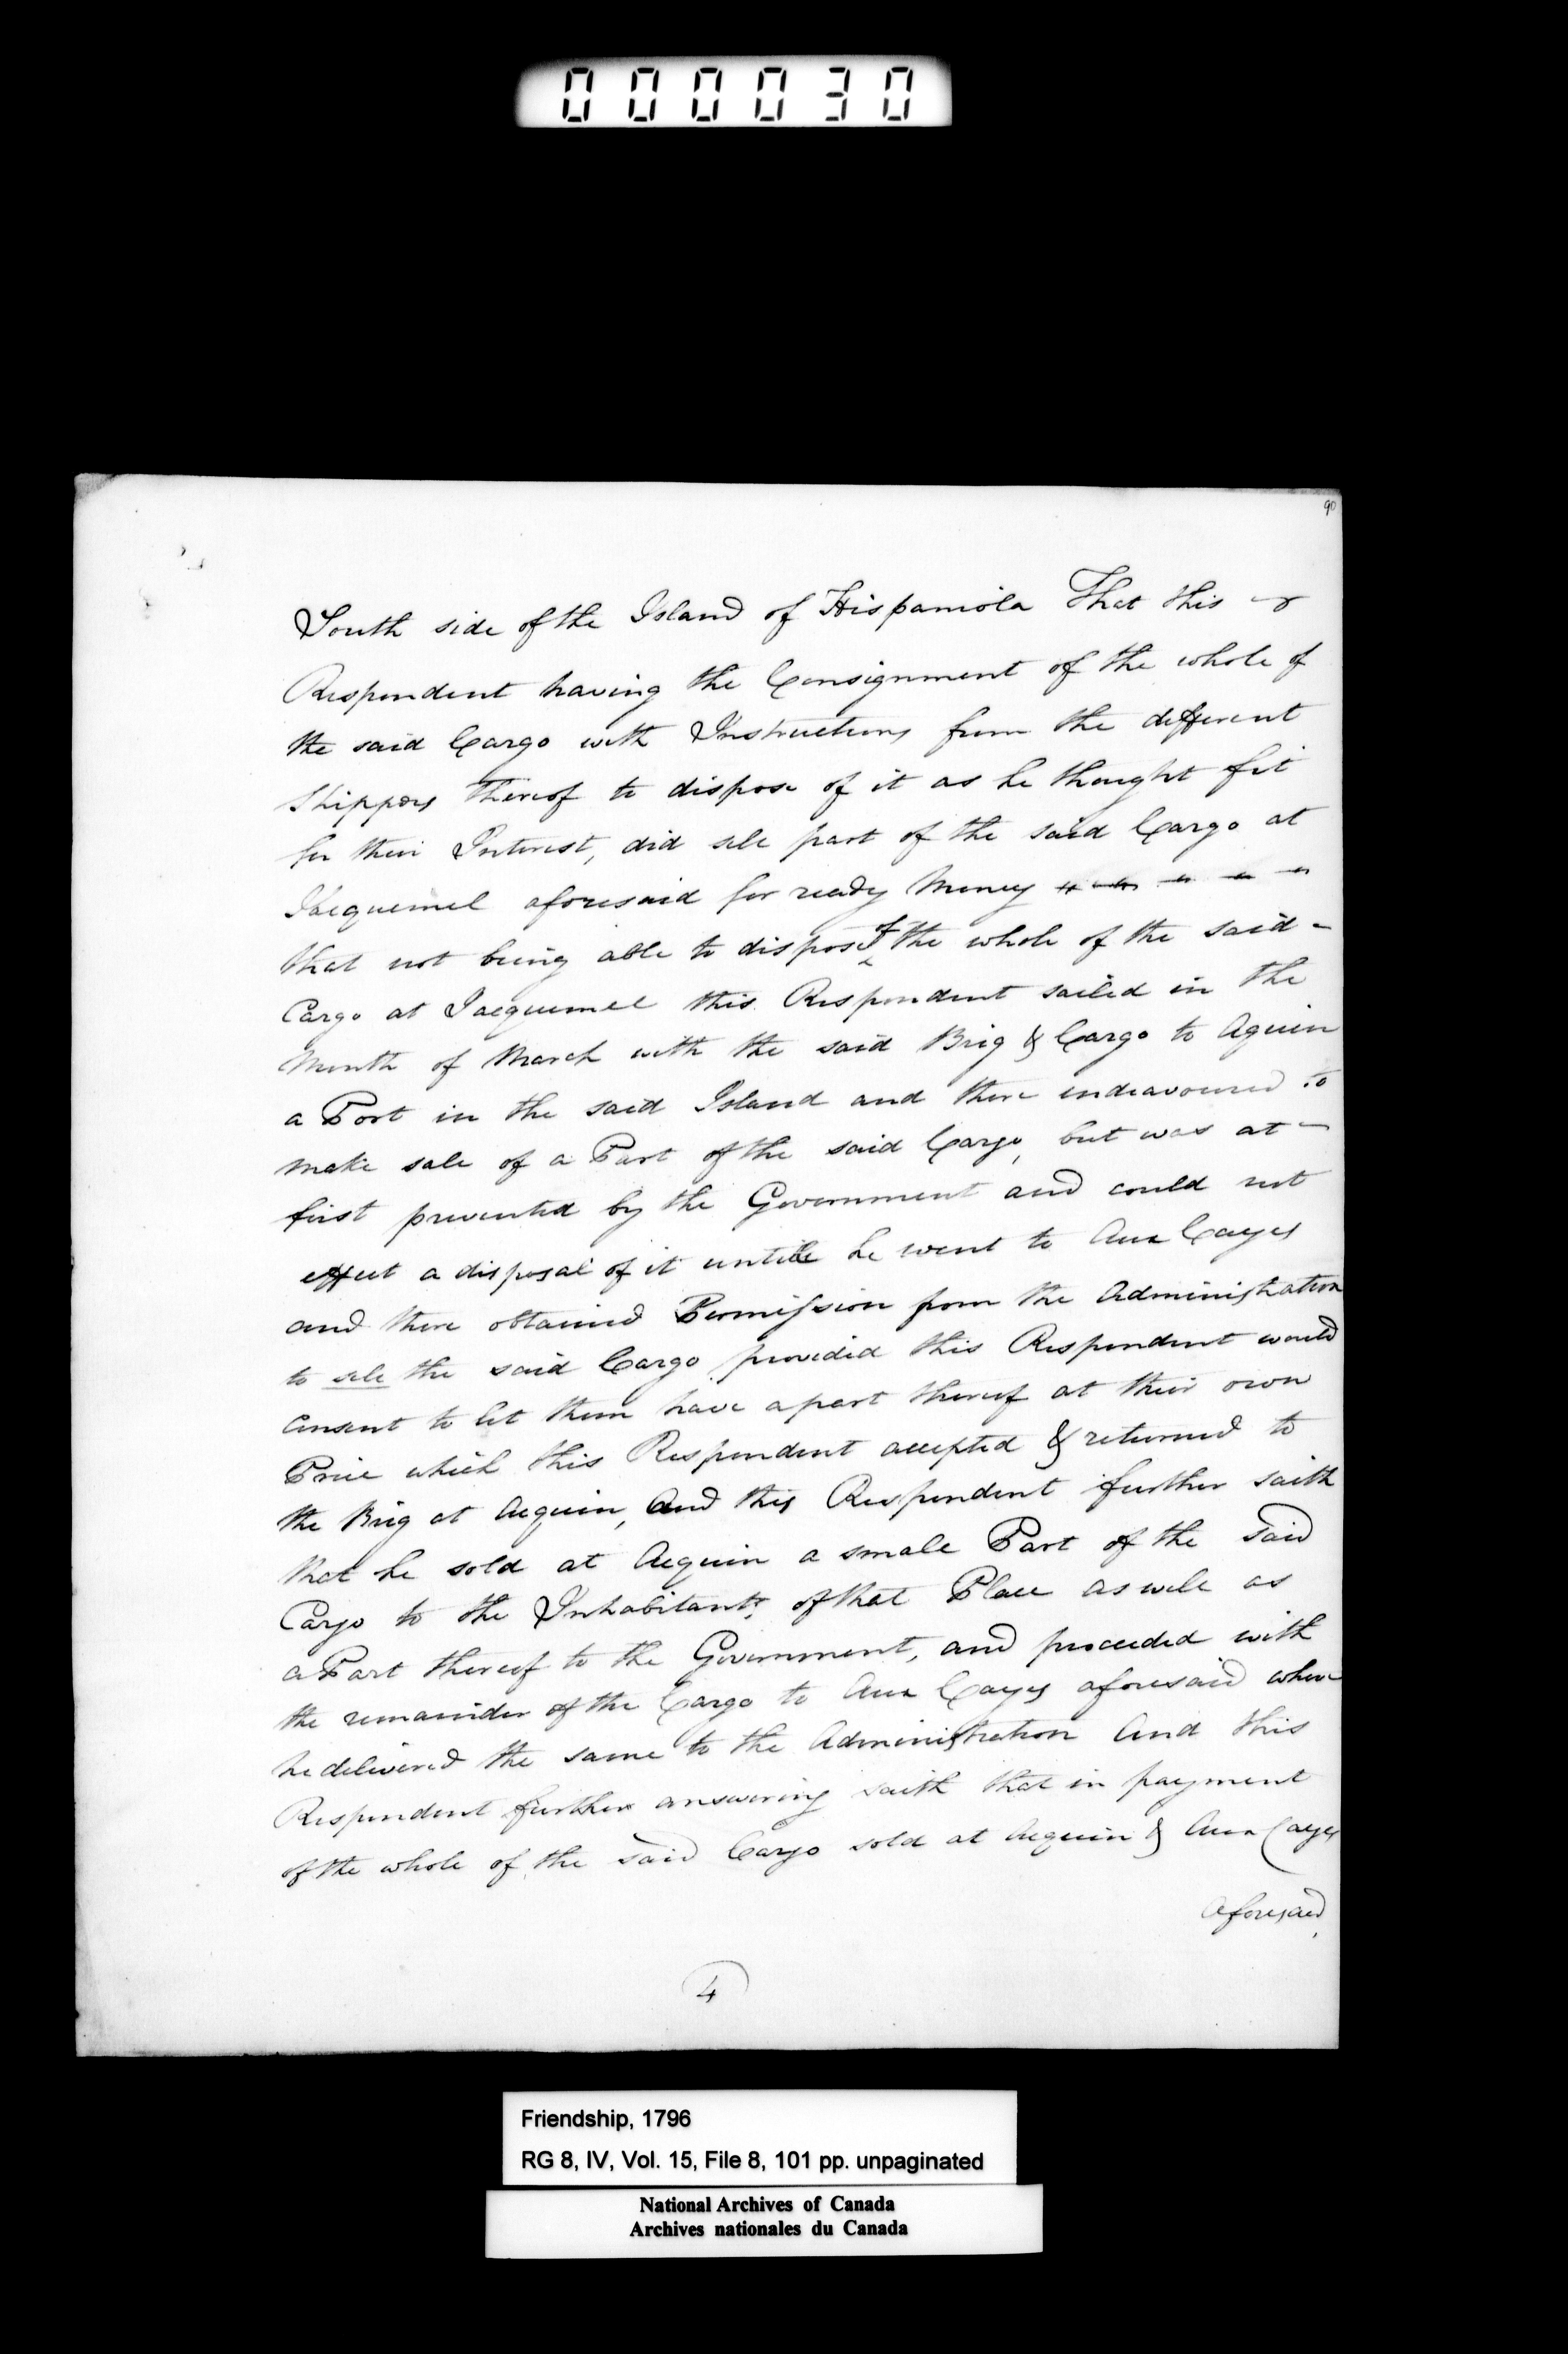 000030
90
South side of the Island of Hispaniola That this
Respondent having the Consignment of the whole of
the said Cargo with Instructions from the different
Shippers thereof to dispose of it as he thought fit
for their Interest, did sell part of the said Cargo at
Jacquemel aforesaid for ready Money
that not being able to dispose of the whole of the said -
Cargo at Jacquemel this Respondent sailed in the
Month of March with the said Brig & Cargo to Aquin
a Port in the said Island and there endeavoured to
make sale of a Part of the said Cargo, but was at -
first prevented by the Government and could not
effect a disposal of it untill he went to Aux Cayes
and there obtained Permission from the Administration
to sell the said Cargo provided this Respondent would
consent to let them have a part thereof at their own
Price which this Respondent accepted & returned to
the Brig at Acquin, And this Respondent further saith
that he sold at Acquin a small Part of the said
Cargo to the Inhabitants of that Place as well as
a Part thereof to the Government, and proceeded with
the remainder of the Cargo to Aux Cayes aforesaid where
he delivered the same to the Administration And this
Respondent further answering saith that in payment
of the whole of the said Cargo sold at Acquin & Aux Cayes
aforesaid,
4
Friendship, 1796
RG 8, IV, Vol. 15, File 8, 101 pp. unpaginated
National Archives of Canada
Archives nationales du Canada